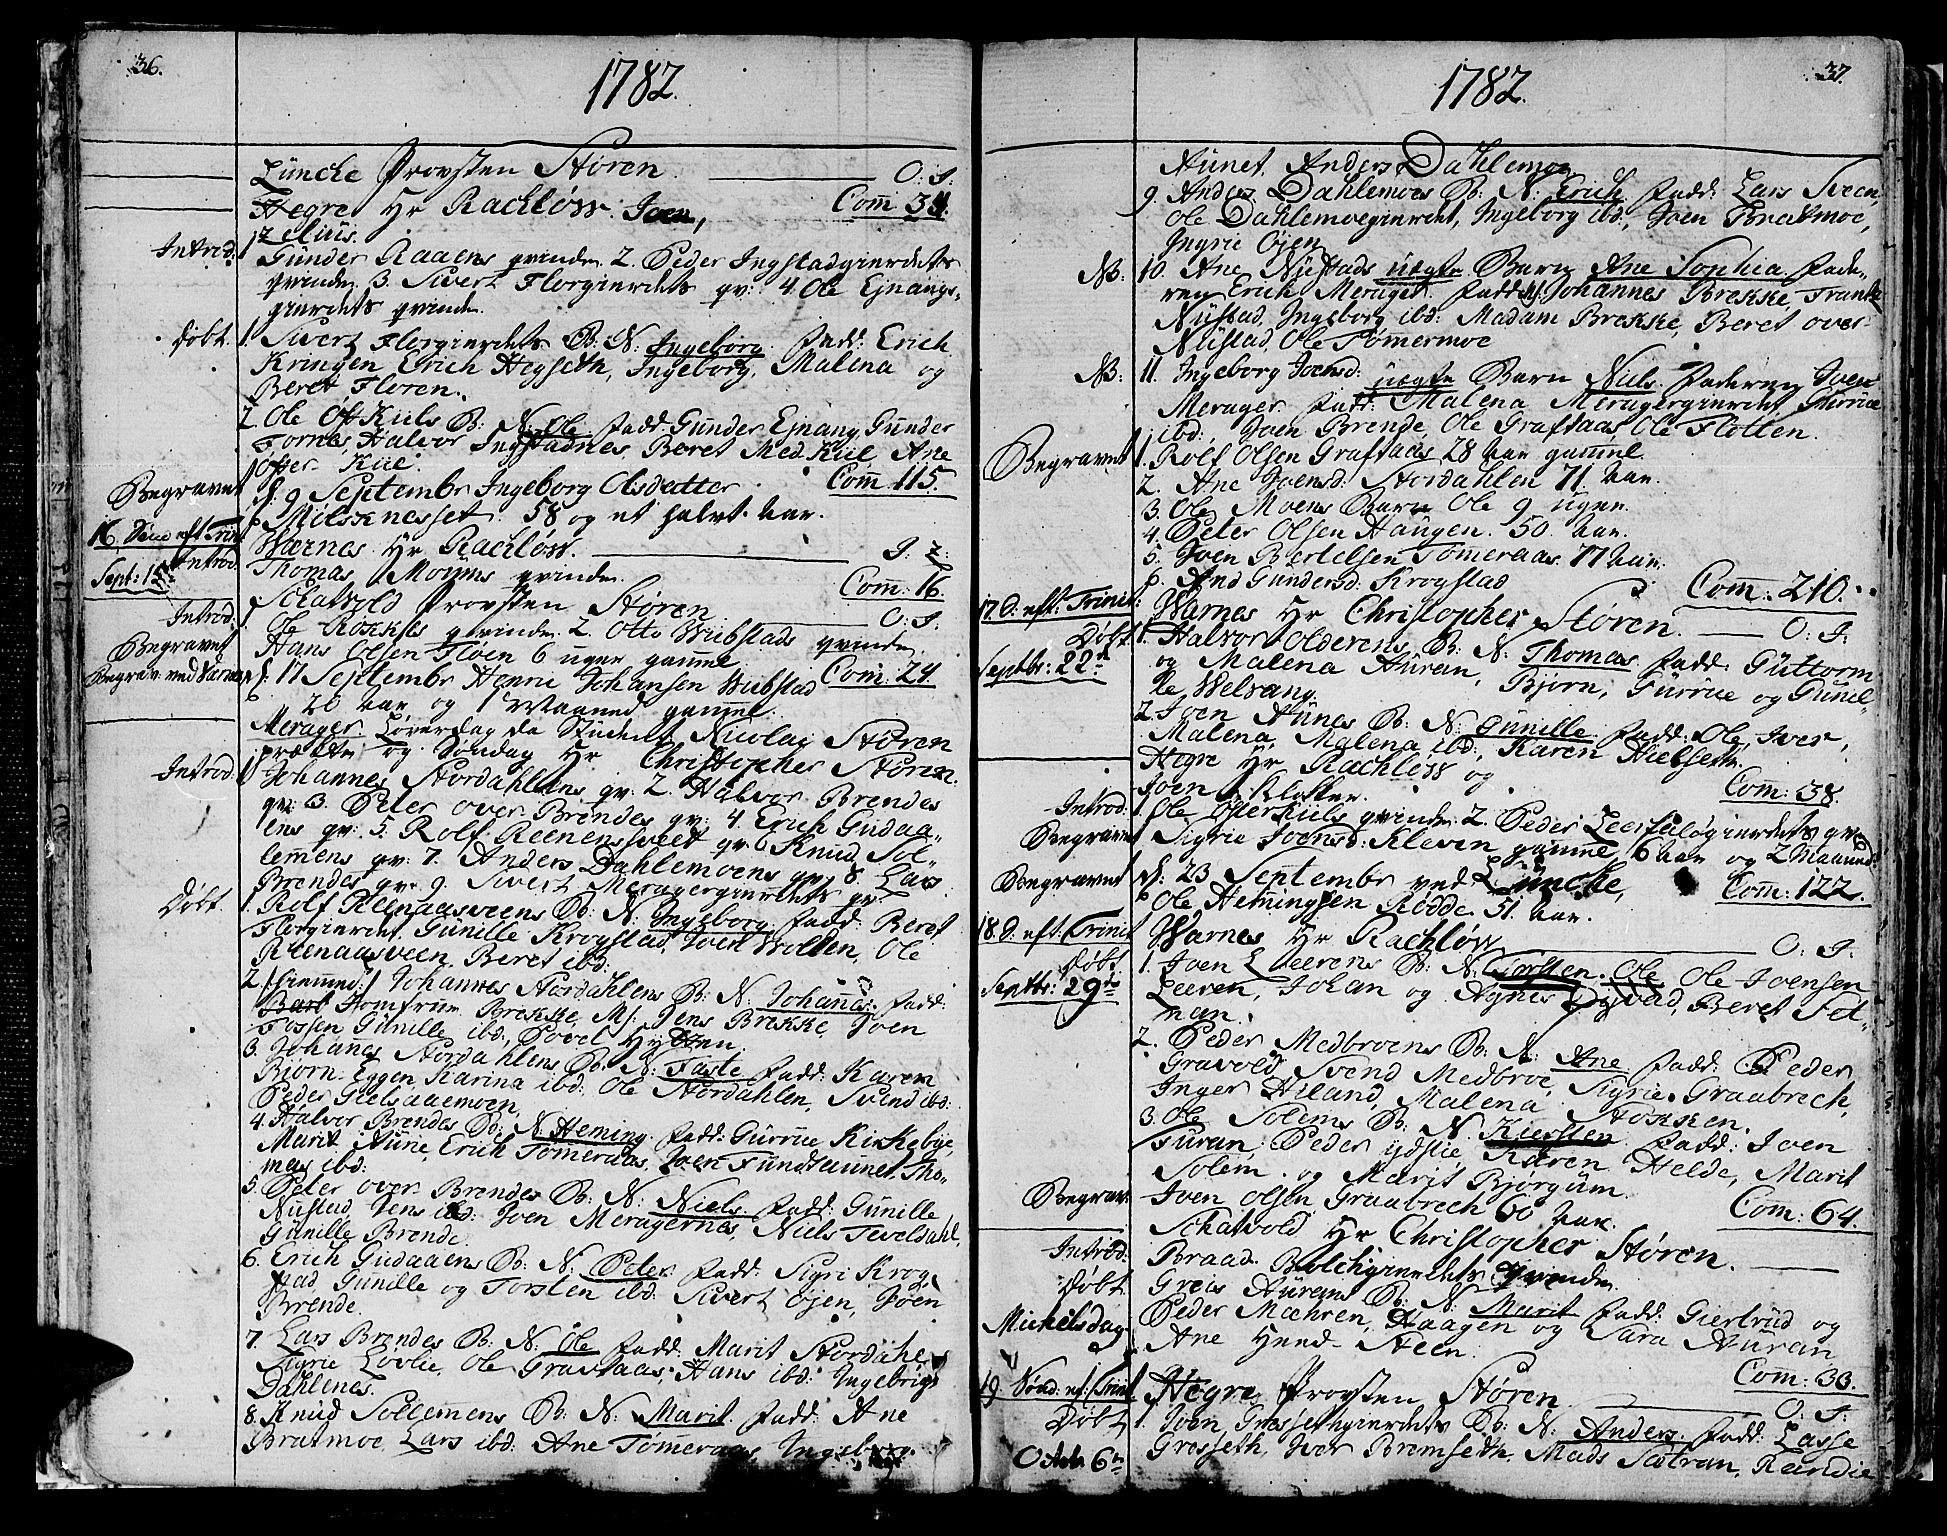 36.
1782.
Lüncke Provsten Støren. O: I:
Hegre Hr Rachløw. Joen, Com 38.
Zelius.
Introd: 1. Gunder Raaens qvinde. 2. Peder Ingstadgierdets
qvinde. 3. Sivert Florgierdets qv: 4. Ole Ejnangs-
gierdets qvinde.
Døbt. 1. Sivert Florgierdets B: N: Ingeborg. Fadd: Erich
Kringen, Erich Hegseth, Ingeborg, Malena og
Beret Floren.
2. Ole Øst Kiels B: N: Ole. Fadd: Gunder Ejnang, Gunder
Fornes, Halvor Ingstadnes, Beret Med Kiil, Ane
Øster Kiil.
Begravet d. 9 Septembr Ingeborg Olsdatter Com 115.
Milsknesset. 58 og et halvt Aar.
16. Sønd: eft: Trin: Wærnes Hr Rachløw. I: 2.
Introd. Thomas Moxnes qvinde. Com: 16.
Sept: 15de Schatvold Provsten Støren O: I:
Introd. 1. Ole Rokkes qvinde. 2. Otto Wibstads qvinde.
Begravet Hans Olsen Floen 6 uger gammel. Com: 24.
Begrav: ved Værnes d. 17 Septembr Henric Johansen Wibstad
20 Aar og 1 Maaned gammel.
Merager. Løverdag da Student Nicolai Støren
prækte og Søndag Hr Christopher Støren.
Introd. 1. Johannes Stordahlens qv: 2. Halvor Brendes
qv: 3. Peter over Brendes qv: 4. Erich Gudaa-
ens qv: 5. Rolf Reenensveet qv: 6 Knud Sol-
lemens qv: 7. Anders Dahlemoens qv: 8. Lars
Brendes qv: 9. Sivert Meragergierdets qv:
Døbt. 1. Rolf Reenaasveens B: N: Ingeborg Fadd: Beret
Florgierdet, Gunille Krogstad, Joen Wollen, Ole
Reenaasveen, Beret ibd:
2. /:hiemmed:/ Johannes Stordahlens B: N: Johannes. Fadd:
Jomfrue Brekke, Ms: Jens Brekke, Joen
Fossen, Gunille ibd, Povel Hytten.
3. Johannes Stordahlens B: N: Faste Fadd: Karen
Bjørn Eggen, Karina ibd: Ole Stordahlen, Svend ibd:
Peder Gielsaaemoen,
4. Halvor Brendes B: N. Heming. Fadd: Gurrue Kirkebye,
Marit Aune, Erich Tømeraas, Joen Fundtaunet, Tho-
mas ibd:
5. Peter over Brendes B: N: Niels. Fadd: Gunille
Nustad, Jens ibd: Joen Meragernes, Niels Teveldahl,
Gunille Brende.
6. Erich Gudaaens B: N: Peter Fadd: Sigri Krog-
stad, Gunille og Torsten ibd. Sivert Øjen, Joen
Brende.
7. Lars Brendes B: N: Ole Fadd: Marit Stordahl
Sigrie Lovlie, Ole Grastaas, Hans ibd: Ingebrigt
Dahlenes.
8. Knud Sollemens B: N: Marit. Fadd: Ane
Bratmoe, Lars ibd: Ane Tømeraas, Ingeborg
37.
1782.
Aunet, Anders Dahlemoe
9. Anders Dahlemoes B: N: Erich Fadd: Lars Sveen,
Ole Dahlemoegierdet, Ingeborg ibd., Joen Bratmoe,
Ingrie Øjen
NB: 10. Ane Nustads uægte Barn Ane Sophia. Fade-
ren Erich Merager. Fadd: Ms: Johannes Brekke, Frantz
Nustad, Ingeborg ibd: Madam Brekke, Beret over-
Nustad, Ole Tømermoe
NB: 11. Ingeborg Joensd: uægte Barn Niels. Faderen Joen
Merager. Fadd: Malena Meragergierdet, Gurrue
ibd: Joen Brende, Ole Grastaas, Ole Flotten.
Begravet 1. Rolf Olsen Grastaas 28 Aar gammel.
2. Ane Joensd: Stordahlen 71. Aar.
3. Ole Moens Barn Ole 9 uger.
4. Peter Olsen Haugen. 50. Aar.
5. Joen Bertelsen Tømeraas. 77 Aar.
6. And Gundersd: Krogstad Com: 210.
17. D: eft: Trinit: Warnes Hr Christopher Støren. O: I:
Døbt 1. Halvor Olderens B: N: Thomas Fadd: Guttorm
Septbr: 22de og Malena Auran, Bjørn, Gurrue og Gunil-
le Welvang.
2. Joen Aunes B: N: Gunille Fadd: Ole, Iver,
Malena, Malena ibd: Karen Hielseth.
Hegre Hr Rachløw og
Joen Kloster. Com: 38.
Introd. 1. Ole Østerkiels qvinde. 2. Peder Leerfaldgierdets qv:
Begravet Sigrie Joensd: Kleven gammel 6 Aar og 2 Maaned:
Begravet d. 23 Septembr ved Luncke, Com: 122.
Ole Hemingsen Rodde. 51. Aar.
18. D: eft: Trinit Warnes Hr Rachløw O: I:
Døbt 1. Joen Leerens B: N: Torsten. Ole Ole Joensen
Septbr: 29de Leeren, Johan og Agnes Dysvad, Beret Fel-
man.
2. Peder Medbroens B: N: Ane Fadd: Peder
Gravold, Svend Medbroe, Sigrie Graabrech,
Inger Hiland, Malena Stokken.
3. Ole Solems B: N. Kiersten. Fadd: Joen
Furan, Peder ydstie, Karen Helde, Marit
Solem og Marit Bjørgum
Begrav: Joen Olsen Graabrech 60 Aar. Com: 64.
Schatvold Hr Christopher Støren.
Introd: Braad Bolchgierdets Qvinde.
Døbt Greis Aurans B: N: Marit Fadd: Giertrud og
Michelsdag. Peder Mæhren, Haagen og Sara Auran,
Ane Hynd- Steen. Com: 33.
19. Sønd: ef: Trinit Hegre Provsten Støren O: I:
Døbt 1. Joen Grossethgierdets B: N: Anders. Fadd: Lasse
Octbr 6te Grosseth, Iver Bremseth, Mads Sætran, Randie